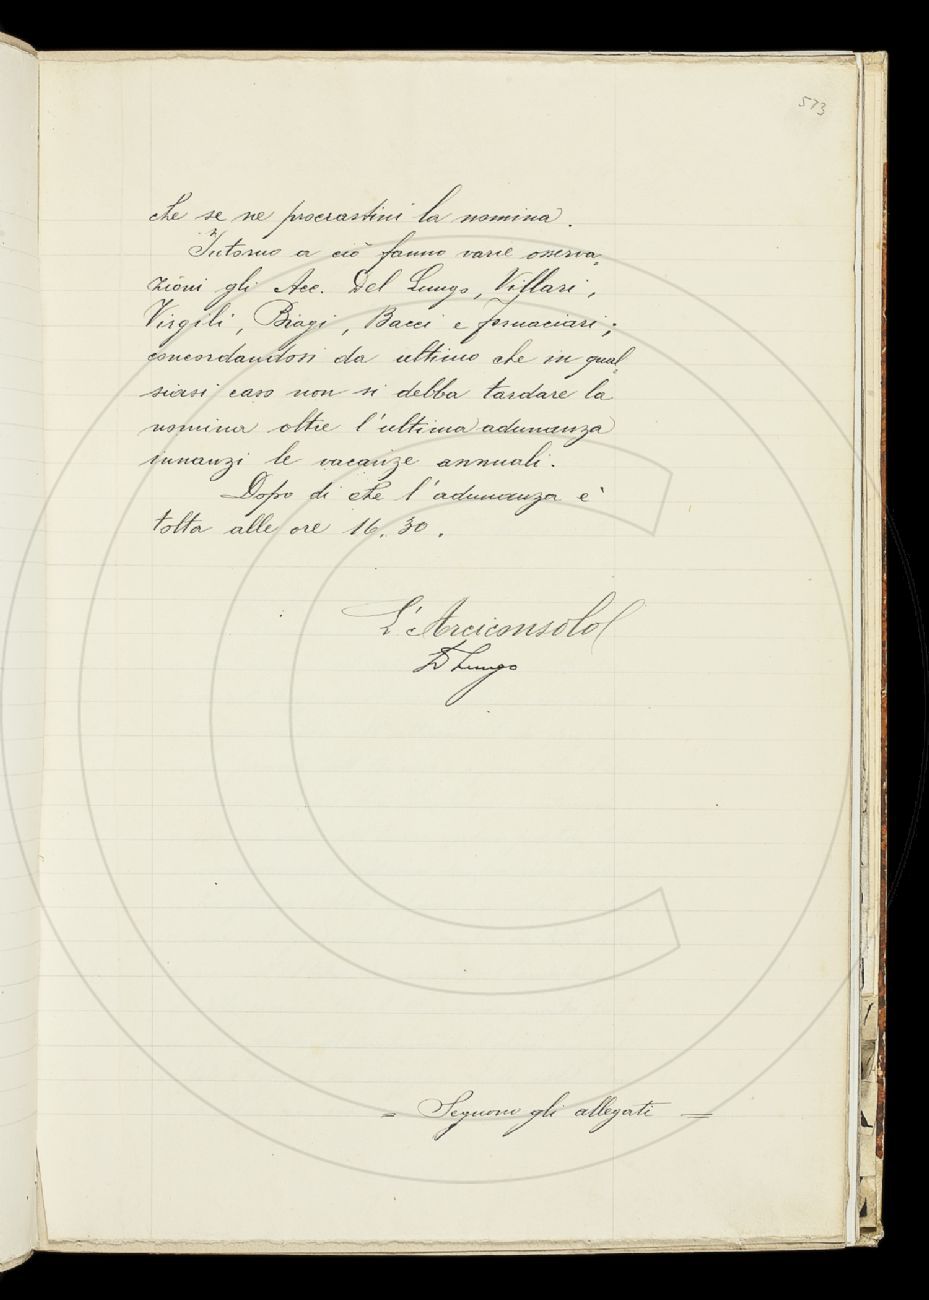 573
che se ne procrastini la nomina.
Intorno a ciò fanno varie osserva=
zioni gli Acc. Del Lungo, Villari,
Virgili, Biagi, Bacci e Fornaciari;
concordandosi da ultimo che in qual=
siasi caso non si debba tardare la
nomina oltre l'ultima adunanza
innanzi le vacanze annuali.
Dopo di che l'adunanza è
tolta alle ore 16.30.
L'Arciconsolo
D Lungo
= Seguono gli allegati =